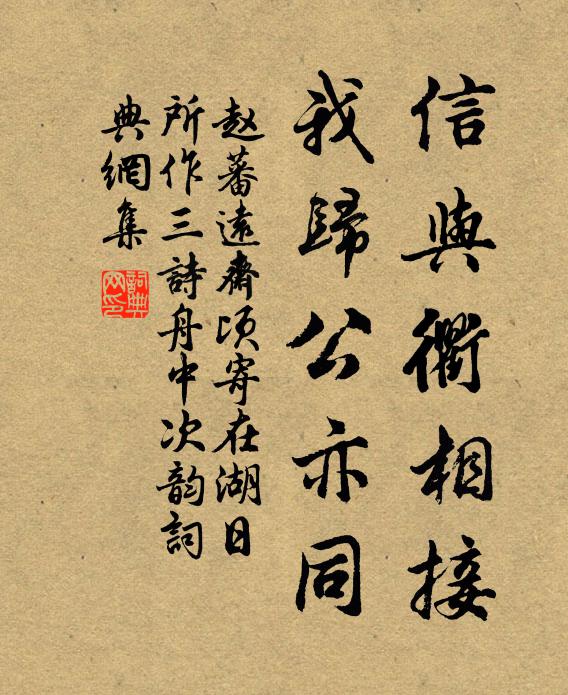 信與衢相接
我歸公亦同
赵蕃遠齋頃寄在湖日
所作三詩舟中次韵詞
典網集
詞典
网印